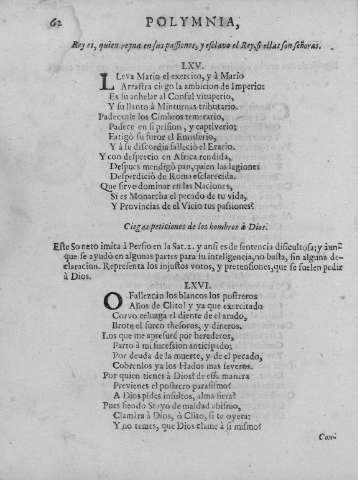 62 POLYMNIA,
Rey es, quien reyna en sus passiones, y esclavo el Rey, si ellas son señoras.
LXV.
LLeva Mario el exercito, y à Mario
Arrastra ciego la ambicion de Imperio:
Es su anhelar al Consul vituperio,
Y su llanto à Minturnas tributario.
Padecenle los Cimbros temerario,
Padece en si prision, y captiverio:
Fatigò su furor el Emisferio,
Y à se discordia falleciò el Erario.
Y con desprecio en Africa rendida,
Despues mendigò pan, quien las legiones
Desperdiciò de Roma esclarecida.
Que sirve dominar en las Naciones,
Si es Monarcha el pecado de tu vida,
Y Provincias del Vicio tus passiones?
Ciegas peticiones de los hombres à Dios.
Este Soneto imita à Persio en la Sat. 2. y ansi es de sentencia dificultosa; y aun-
que se ayudò en algunas partes para su inteligencia, no basta, sin alguna de-
claracion. Representa los injustos votos, y pretensiones, que se suelen pedir
à Dios.
LXVI.
O Fallezcan los blancos los postreros
Años de Clito! y ya que exercitado
Corvo reluzga el diente de el arado,
Brote el surco thesoros, y dineros.
Los que me apresurè por herederos,
Parto à mi sucession anticipado;
Por deuda de la muerte, y de el pecado,
Cobrenlos ya los Hados mas severos.
Por quien tienes à Dios? de essa manera
Previenes el postrero parasismo?
A Dios pides insultos, alma fiera?
Pues siendo Stayo de maldad abismo,
Clamàra à Dios, ò Clito, si te oyera;
Y no temes, que Dios clame à si mismo?
Con-